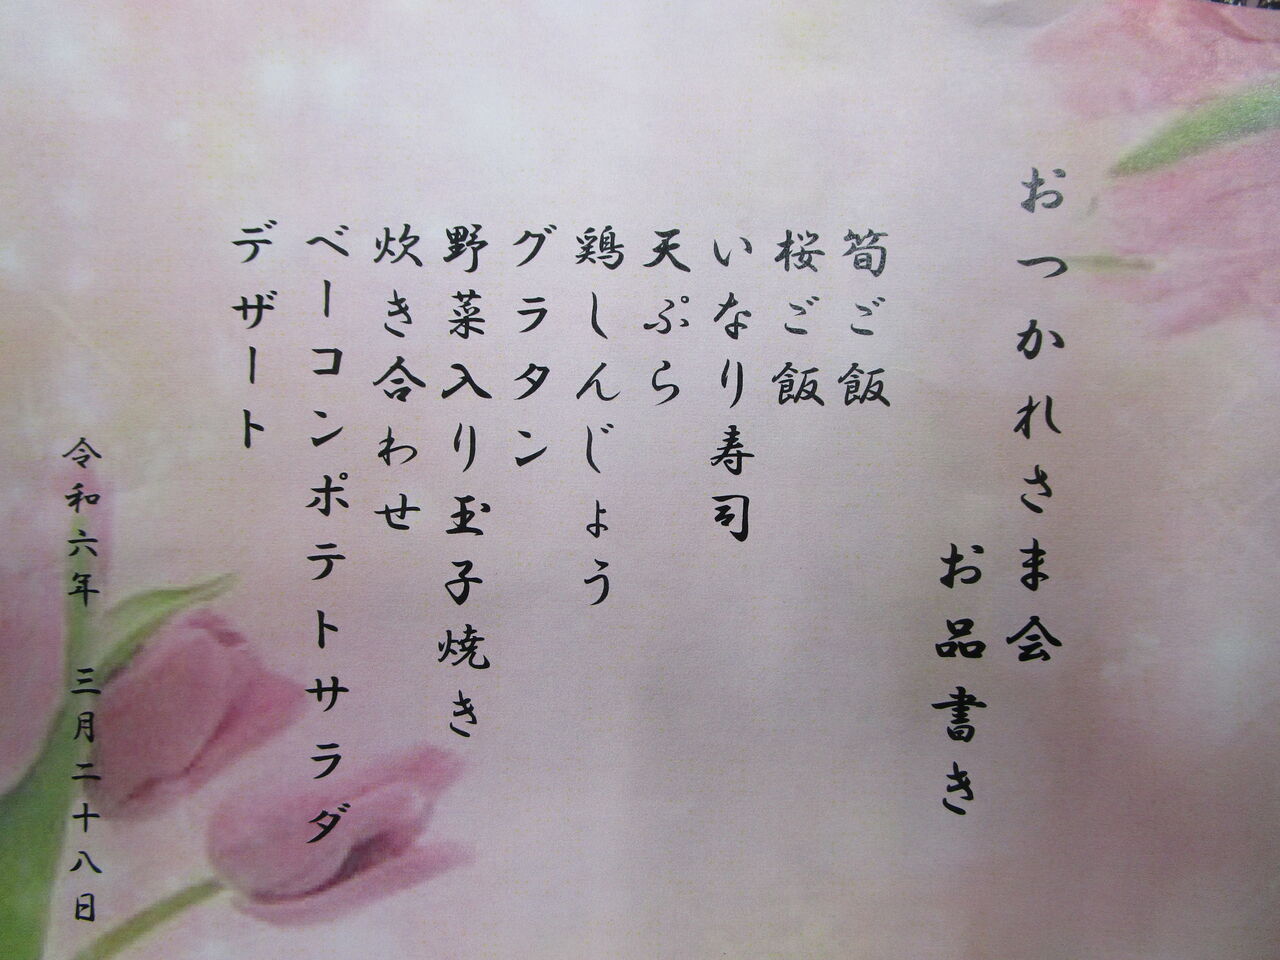 おつかれさま会
お品書き
筍ご飯
桜ご飯
いなり寿司
天ぷら
鶏しんじょう
グラタン
野菜入り玉子焼き
炊き合わせ
ベーコンポテトサラダ
デザート
令和六年　三月二十八日